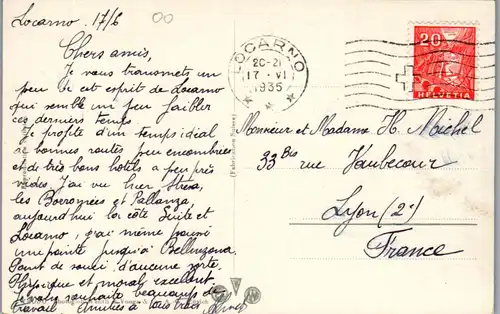 Locarno. 17/6
Chers amis,
Je vous transmets un
peu de cet esprit de Locarno
qui semble un peu faiblir
ces derniers temps.
Je profite d'un temps idéal
de bonnes routes peu encombrées
et de très bons hôtels a peu près
vides. J'ai vu hier Stresa,
les Borromées et Pallanza,
aujourd'hui la côte Suisse et
Locarno, j'ai même poussé
une pointe jusqu'à Bellinzona.
Point de souci, d'aucune sorte.
Physique et moral excellent.
Je vous souhaite beaucoup de
travail. Amitiés à tous trois
LOCARNO
20-21
17·VI
1935
20
HELVETIA
Monsieur et Madame H. Michel
33 Bis rue Vaubecour
Lyon (2e)
France